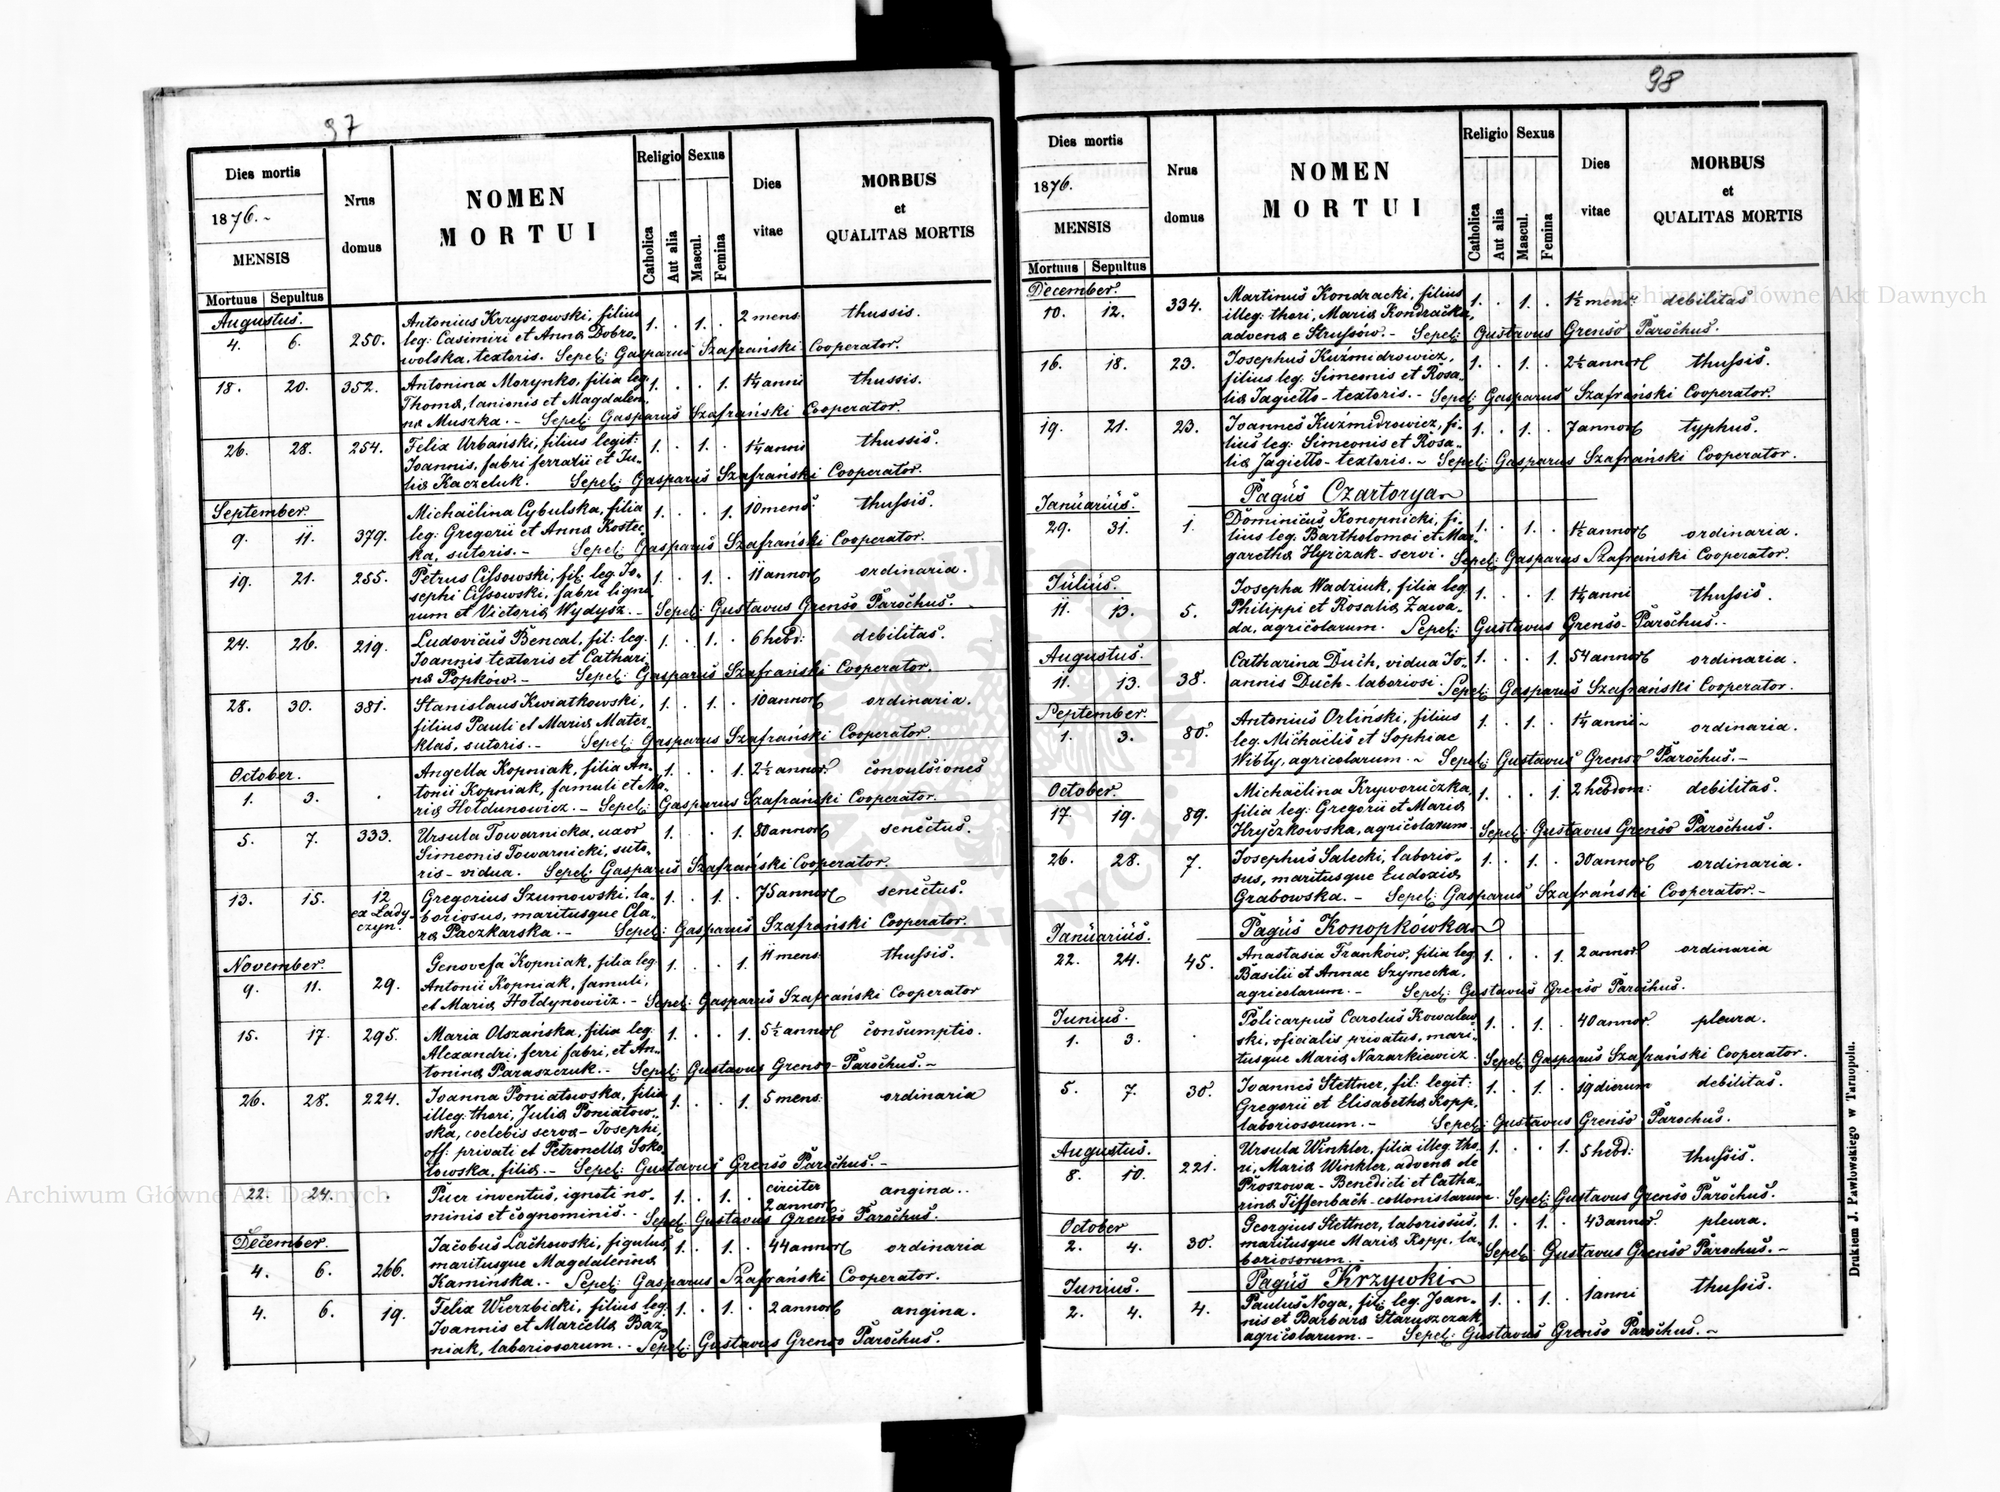 97
Dies mortis
1876.
MENSIS
Mortuus Sepultus
Nrus domus
NOMEN
MORTUI
Religio
Catholica
Aut alia
Sexus
Mascul.
Femina
Dies vitae
MORBUS
et
QUALITAS MORTIS
Augustus.
4. 6. 250. Antonius Krzyszowski, filius 1. . 1. . 2 mens. thussis.
leg: Casimiri et Anna Dobro-
wolska, textoris. Sepel: Gasparus Szafrański Cooperator.
18. 20. 352. Antonina Morynko, filia leg. 1. . . 1. 1¼ anni thussis.
Thoma, lanionis et Magdalen
na Muszka. - Sepel: Gasparus Szafrański Cooperator.
26. 28. 254. Felix Urbański, filius legit: 1. . 1. . 1¼ anni thussis.
Joannis, fabri ferrarii et Ju-
lia Kaczeluk. Sepel: Gasparus Szafrański Cooperator.
September.
9. 11. 379. Michaëlina Cybulska, filia 1. . . 1. 10 mens: thussis.
leg: Gregorii et Anna Kostec
ka, sutoris. - Sepel: Gasparus Szafrański Cooperator.
19. 21. 255. Petrus Cissowski, fil: leg. Jo- 1. . 1. . 11 annor ordinaria.
sephi Cissowski, fabri ligna
rum et Victoria Wydysz. - Sepel: Gustavus Grenso Parochus.
24. 26. 219. Ludovicus Bencal, fil: leg. 1. . 1. . 6 hebd: debilitas.
Joannis textoris et Cathari
na Popków. - Sepel: Gasparus Szafrański Cooperator.
28. 30. 381. Stanislaus Kwiatkowski, 1. . 1. . 10 annor ordinaria.
filius Pauli et Maria Mater
klas, sutoris. - Sepel: Gasparus Szafrański Cooperator.
October.
1. 3. . Angella Kopniak, filia An- 1. . . 1. 2½ annor: convulsiones
tonii Kopniak, famuli et Ma-
ria Hołdunowicz. - Sepel: Gasparus Szafrański Cooperator.
5. 7. 333. Ursula Towarnicka, uxor 1. . . 1. 80 annor senectus.
Simeonis Towarnicki, suto-
ris - vidua. Sepel: Gasparus Szafrański Cooperator.
13. 15. 12 ex Lady-czyn. Gregorius Szumowski, la- 1. . 1. . 75 annor senectus.
boriosus, maritusque Cla-
ra Paczkarska. - Sepel: Gasparus Szafrański Cooperator.
November.
9. 11. 29. Genovefa Kopniak, filia leg 1. . . 1. 11 mens thussis.
Antonii Kopniak, famuli,
et Maria Hołdynowicz. - Sepel: Gasparus Szafrański Cooperator
15. 17. 295. Maria Olszańska, filia leg: 1. . . 1. 5½ annor consumptio.
Alexandri, ferri fabri, et An-
tonina Paraszczuk. - Sepel: Gustavus Grenso - Parochus. -
26. 28. 224. Joanna Poniatowska, filia 1. . . 1. 5 mens: ordinaria
illeg: thori, Julia Poniatow-
ska, coelebis serva - Josephi,
off: privati et Petronella Soko
łowska, filia. - Sepel: Gustavus Grenso Parochus. -
22. 24. . Puer inventus, ignoti no- 1. . 1. . circiter 2 annor angina.
minis et cognominis. - Sepel: Gustavus Grenso Parochus.
December.
4. 6. 266. Jacobus Lachowski, figulus, 1. . 1. . 44 annor ordinaria
maritusque Magdalenna
Kaminska. - Sepel: Gasparus Szafrański Cooperator.
4. 6. 19. Felix Wierzbicki, filius leg. 1. . 1. . 2 annor angina.
Joannis et Marcella Baz
niak, laboriosorum. - Sepel: Gustavus Grenso Parochus.
98
Dies mortis
1876.
MENSIS
Mortuus Sepultus
Nrus domus
NOMEN
MORTUI
Religio
Catholica
Aut alia
Sexus
Mascul.
Femina
Dies vitae
MORBUS
et
QUALITAS MORTIS
December.
10. 12. 334. Martinus Kondracki, filius 1. . 1. . 1½ mens: debilitas
illeg: thori, Maria Kondracka,
advena e Strussów. - Sepel: Gustavus Grenso Parochus.
16. 18. 23. Josephus Kuźmidrowicz, 1. . 1. . 2½ annor thussis.
filius leg. Simeonis et Rosa-
lia Jagiełło - textoris. - Sepel: Gasparus Szafrański Cooperator.
19. 21. 23. Joannes Kuźmidrowicz, fi- 1. . 1. . 7 annor typhus.
lius leg: Simeonis et Rosa-
lia Jagiełło - textoris. - Sepel: Gasparus Szafrański Cooperator.
Pagus Czartorya
Januarius.
29. 31. 1. Dominicus Konopnicki, fi- 1. . 1. . 1½ annor ordinaria.
lius leg. Bartholomaei et Mar
garetha Hyrczak - servi. Sepel: Gasparus Szafrański Cooperator.
Julius.
11. 13. 5. Josepha Wadziuk, filia leg 1. . . 1. 1¼ anni thussis.
Philippi et Rosalia Zawa-
da, agricolarum. Sepel: Gustavus Grenso - Parochus. -
Augustus.
11. 13. 38. Catharina Duch, vidua Jo- 1. . . 1. 54 annor ordinaria.
annis Duch - laboriosi. Sepel: Gasparus Szafrański Cooperator.
September.
1. 3. 80. Antonius Orliński, filius 1. . 1. . 1¼ anni ordinaria.
leg. Michaëlis et Sophiae
Wibły, agricolarum. - Sepel: Gustavus Grenso Parochus. -
October.
17. 19. 89. Michaëlina Kryworuczka, 1. . . 1. 2 hebdom: debilitas.
filia leg: Gregorii et Maria
Hryczkowska, agricolarum Sepel: Gustavus Grenso Parochus.
26. 28. 7. Josephus Salecki, laborio- 1. . 1. . 30 annor ordinaria.
sus, maritusque Eudoxia
Grabowska. - Sepel: Gasparus Szafrański Cooperator. -
Pagus Konopkówka
Januarius.
22. 24. 45. Anastasia Franków, filia leg 1. . . 1. 2 annor ordinaria
Basilii et Annae Szymecka,
agricolarum. - Sepel: Gustavus Grenso Parochus.
Junius.
1. 3. . Policarpus Carolus Kowalew 1. . 1. . 40 annor. pleura.
ski, oficialis privatus, mari-
tusque Maria Nazarkiewicz Sepel: Gasparus Szafrański Cooperator.
5. 7. 30. Joannes Stettner, fil: legit: 1. . 1. . 19 dierum debilitas.
Gregorii et Elisabetha Kopp,
laboriosorum. - Sepel: Gustavus Grenso Parochus.
Augustus.
8. 10. 221. Ursula Winkler, filia illeg. tho- 1. . . 1. 5 hebd: thussis.
ri, Maria Winkler, advena de
Proszowa - Benedicti et Catha
rina Tiffenbach - collonistarum. Sepel: Gustavus Grenso Parochus.
October
2. 4. 30. Georgius Stettner, laboriosus, 1. . 1. . 43 annor. pleura.
maritusque Maria Kopp, la-
boriosorum. - Sepel: Gustavus Grenso Parochus. -
Pagus Krzywki
Junius.
2. 4. 4. Paulus Noga, fil: leg. Joan- 1. . 1. . 1 anni thussis.
nis et Barbara Staruszczak
agricolarum. - Sepel: Gustavus Grenso Parochus. -
Drukiem J. Pawłowskiego w Tarnopolu.
Archiwum Główne Akt Dawnych
Archiwum Główne Akt Dawnych